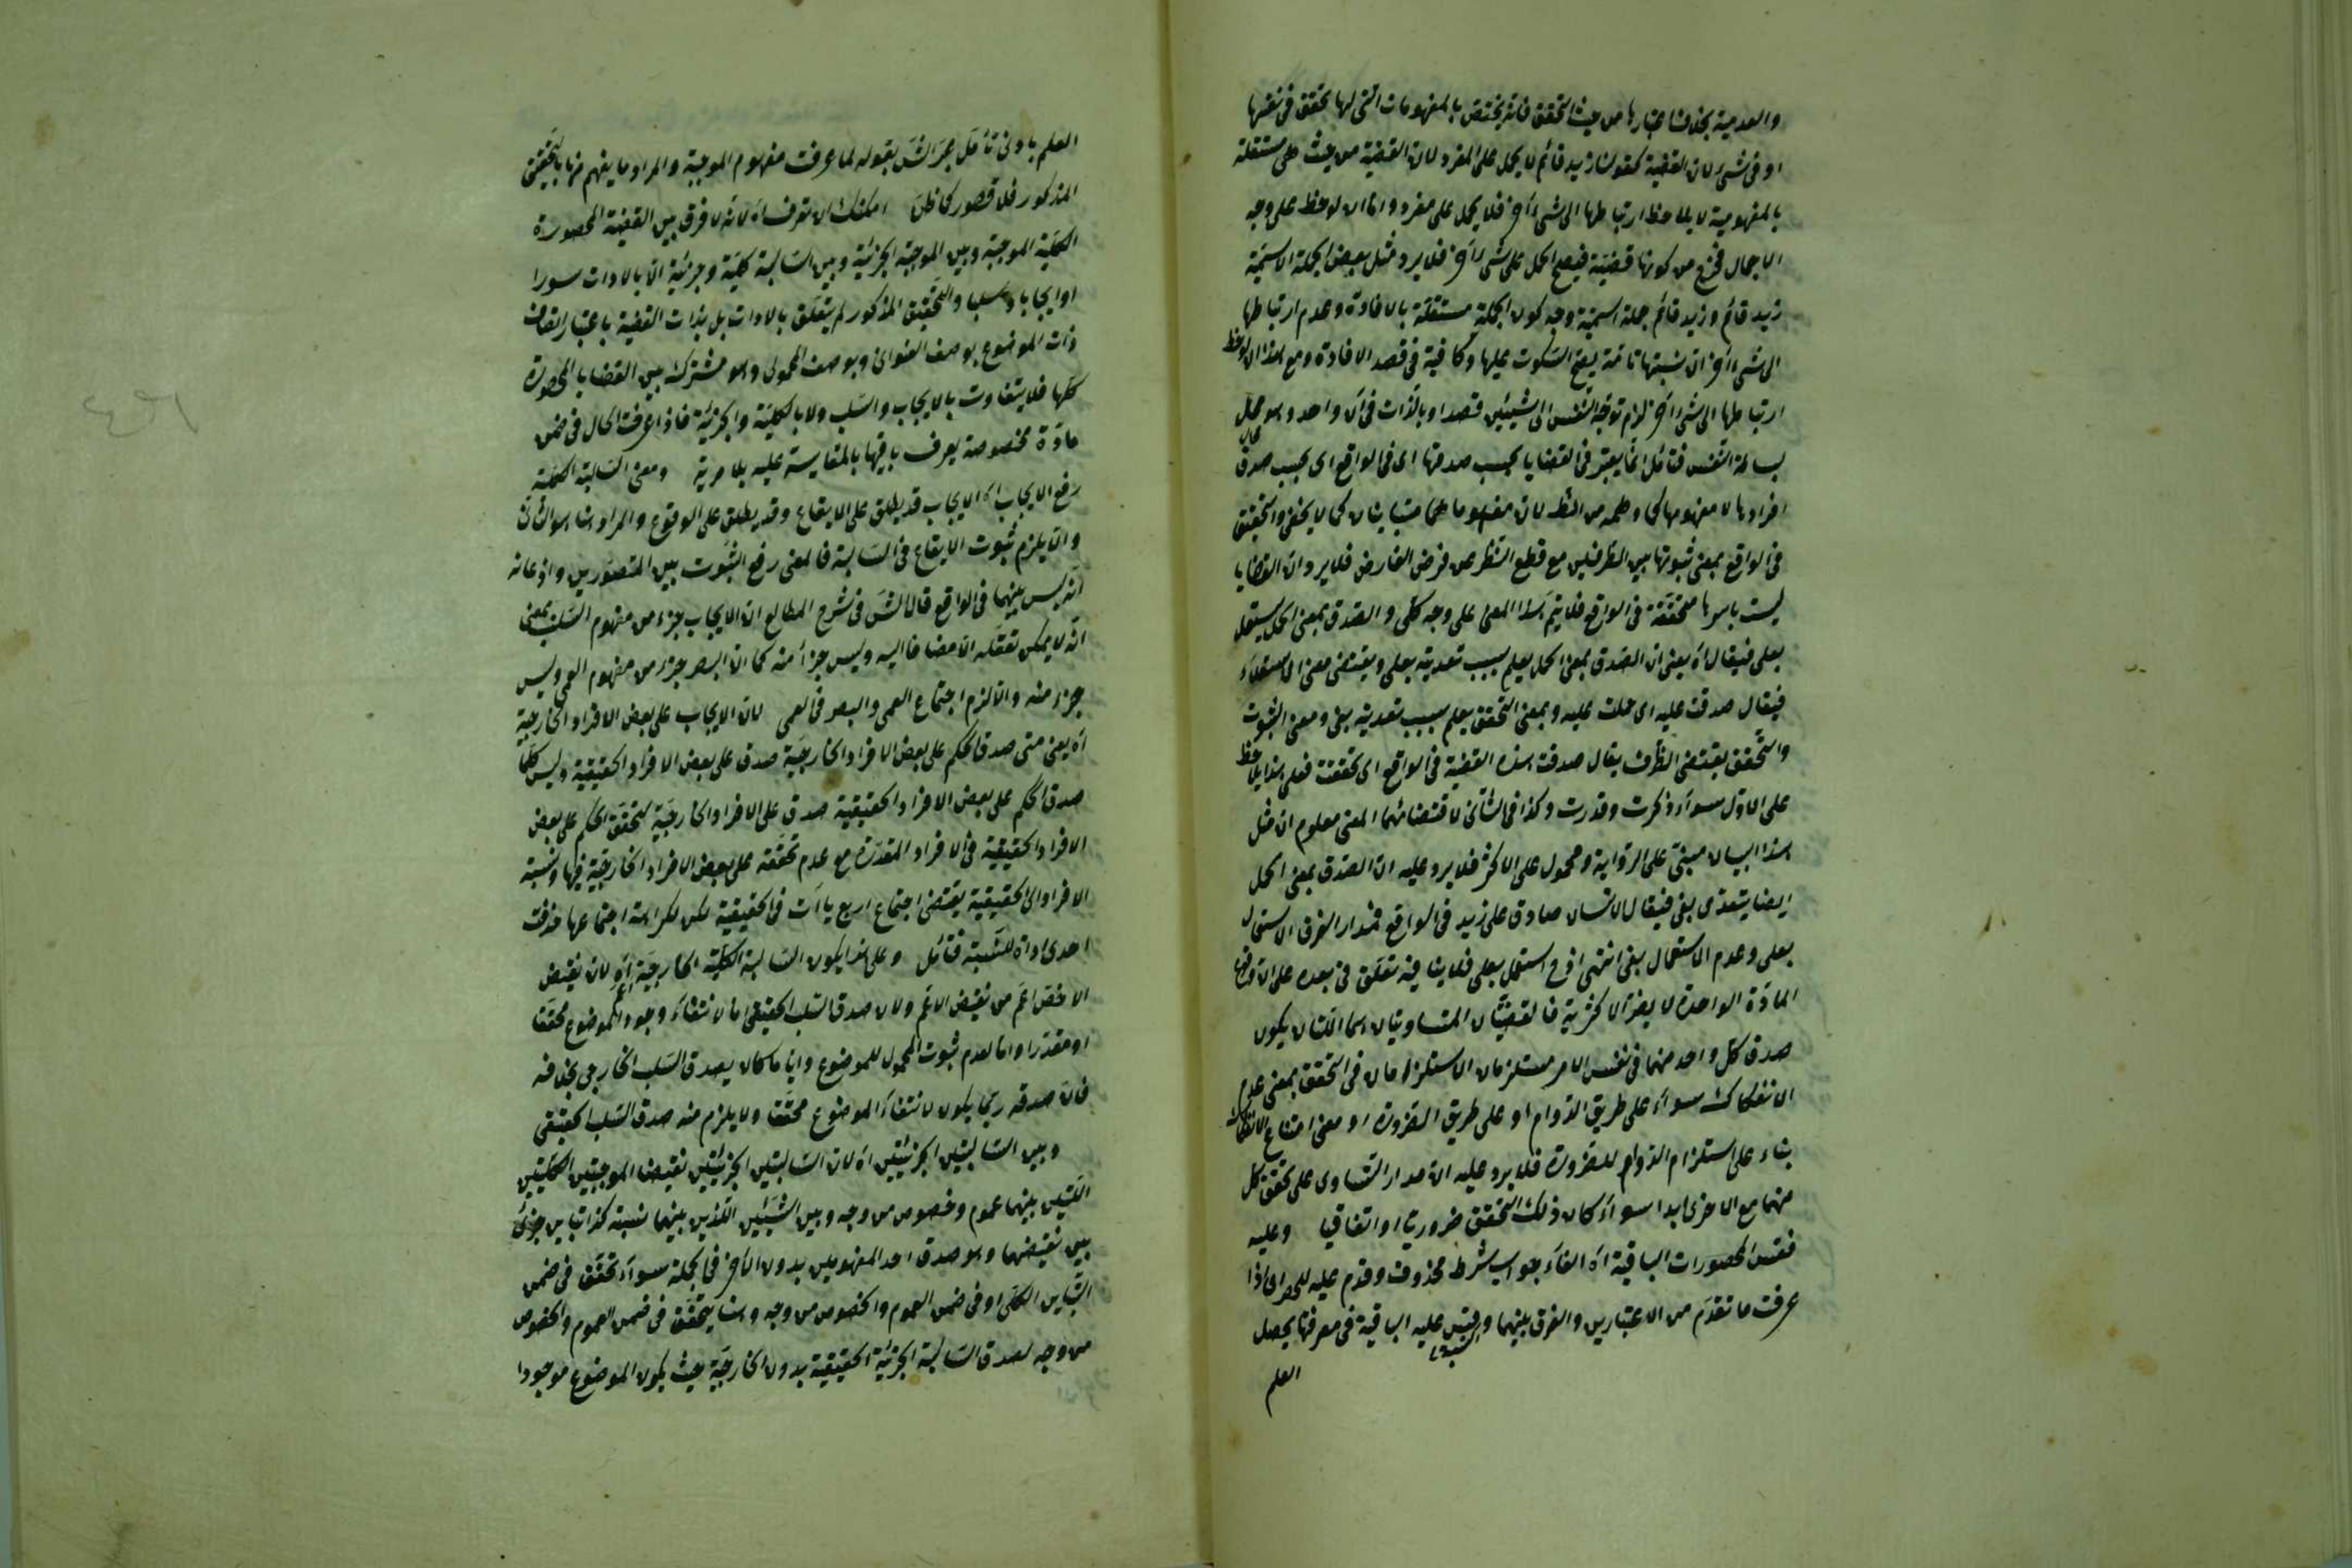 والعدمية بخلاف اعتبارها من حيث التحقق فانه يختص بالمفهومات التى لها تحقق فى نفسها
او فى شئ لان القضية كقولنا زيد قائم لا يحمل على المفرد لان القضية من حيث هى مستقلة
بالمفهومية لا يلاحظ ارتباطها الى شئ آخر فلا يحمل على مفرد واما ان لوحظ على وجه
الاجمال فخرج من كونها قضية فيصح الحمل على شئ آخر فلا يرد مثل بعض الجملة الاسمية
زيد قائم وزيد قائم جملة اسمية وجه كون الجملة مستقلة بالافادة وعدم ارتباطها
الى شئ آخر ان نسبتها تامة يصح السكوت عليها وكافية فى قصد الافادة ومع هذا ان لوحظ
ارتباطها الى شئ آخر لزم توجه النفس الى شيئين قصدا وبالذات فى آن واحد وهو محال
بساطة النفس فتامل انما يعتبر فى القضايا بحسب صدقها اى فى الواقع اى بحسب صدق
افرادها لا مفهومها كما وظهر من النظر لان مفهوماهما متباينان كما لا يخفى والتحقيق
فى الواقع بمعنى ثبوتها بين الطرفين مع قطع النظر عن فرض الفارض فلا يرد ان القضايا
ليست باسرها متحققة فى الواقع فلا يتم هذا المعنى على وجه كلى والصدق بمعنى الحمل يستعمل
بعلى فيقال اه يعنى ان الصدق بمعنى الحمل يعلم بسبب تعديته بعلى ويقتضى معنى الاستعلاء
فيقال صدقت عليه اى حملت عليه وبمعنى التحقق يعلم بسبب تعديته بفى ومعنى الثبوت
والتحقق يقتضى الظرف يقال صدقت هذه القضية فى الواقع اى تحققت فعلى هذا يلاحظ
على الاول سواء ذكرت وقدرت وكذا فى الثانى لاقتضائهما المعنى معلوم ان مثل
هذا البيان مبنى على الرواية ومحمول على الاكثر فلا يرد عليه ان الصدق بمعنى الحمل
ايضا يتعدى بفى فيقال الانسان صادق على زيد فى الواقع فمدار الفرق الاستعمال
بعلى وعدم الاستعمال بفى انتهى اذ ح استعمل بعلى فلا ينافيه تعلق فى بعده على ان وقوع
المادة الواحدة لا يضر الاكثرية فالقضيتان المتساويتان هما اللتان يكون
صدق كل واحد منهما فى نفس الامر مستلزمان الاستلزامان فى التحقق بمعنى عدم
الانفكاك سواء على طريق الدوام او على طريق الضرورة او معنى امتناع الانفكاك
بناء على استلزام الدوام للضرورة فلا يرد عليه ان مدار التساوى على تحقق كل
منهما مع الاخرى ابدا سواء كان ذلك التحقق ضروريا او اتفاقيا وعليه
فقس المحصورات الباقية اه الفاء جواب شرط محذوف وقدم عليه للحصر اى اذا
عرفت ما تقدم من الاعتبارين والفرق بينهما وقس عليه الباقية فى معرفتها يحصل
العلم
العلم بادنى تأمل عبر الش بقوله لما عرفت مفهوم الموجبة والمراد ما يفهم منها بالتحقيق
المذكور فلا قصور كما ظن امكنك ان تعرف اه لانه لا فرق بين القضية المحصورة
الكلية الموجبة وبين الموجبة الجزئية وبين السالبة كلية وجزئية الا بالادات سورا
او ايجابا وسلبا والتحقيق المذكور لم يتعلق بالادات بل بذات القضية باعتبار اتصاف
ذات الموضوع بوصف العنوانى وبوصف المحمولى وهو مشترك بين القضايا المحصورة
كلها فلا يتفاوت بالايجاب والسلب ولا بالكلية والجزئية فاذا عرفت الحال فى ضمن
مادة مخصوصة يعرف باقيها بالمقايسة عليه بلا مرية ومعنى السالبة الكلية
رفع الايجاب اه الايجاب قد يطلق على الايقاع وقد يطلق على الوقوع والمراد هنا هو الثانى
والا يلزم ثبوت الايقاع فى السالبة فالمعنى رفع الثبوت بين المتصورين واذعانه
انه ليس بينهما فى الواقع قال الش فى شرح المطالع ان الايجاب جزء من مفهوم السلب بمعنى
انه لا يمكن تعقله الا مضافا اليه وليس جزأ منه كما ان البصر جزء من مفهوم العمى وليس
جزء منه والا لزم اجتماع العمى والبصر فى العمى لان الايجاب على بعض الافراد الخارجية
اه يعنى متى صدق الحكم على بعض الافراد الخارجية صدق على بعض الافراد الحقيقية وليس كلما
صدق الحكم على بعض الافراد الحقيقية صدق على الافراد الخارجية لتحقق الحكم على بعض
الافراد الحقيقية فى الافراد المقدرة مع عدم تحققه على بعض الافراد الخارجية فيها ونسبة
الافراد الى الحقيقية يقتضى اجتماع اربع ياآت فى الحقيقية لكن لكراهة اجتماعها حذفت
احدى اداة للنسبة فتامل وعلى هذا يكون السالبة الكلية الخارجية اعم اه لان نقيض
الاخص اعم من نقيض الاعم ولان صدق السلب الحقيقى اما لانتفاء وجود الموضوع محققا
او مقدرا واما لعدم ثبوت المحمول للموضوع وايا ما كان يصدق السلب الخارجى بخلافه
فان صدقه ربما يكون لانتفاء الموضوع محققا ولا يلزم منه صدق السلب الحقيقى
وبين السالبتين الجزئيتين اه لان السالبتين الجزئيتين نقيضا الموجبتين الكليتين
اللتين بينهما عموم وخصوص من وجه وبين الشيئين اللذين بينهما نسبة كذا تباين جزئى
بين نقيضهما وهو صدق احد المفهومين بدون الآخر فى الجملة سواء تحقق فى ضمن
التباين الكلى او فى ضمن العموم والخصوص من وجه وهنا يتحقق فى ضمن العموم والخصوص
من وجه لصدق السالبة الجزئية الحقيقية بدون الخارجية حيث يكون الموضوع موجودا